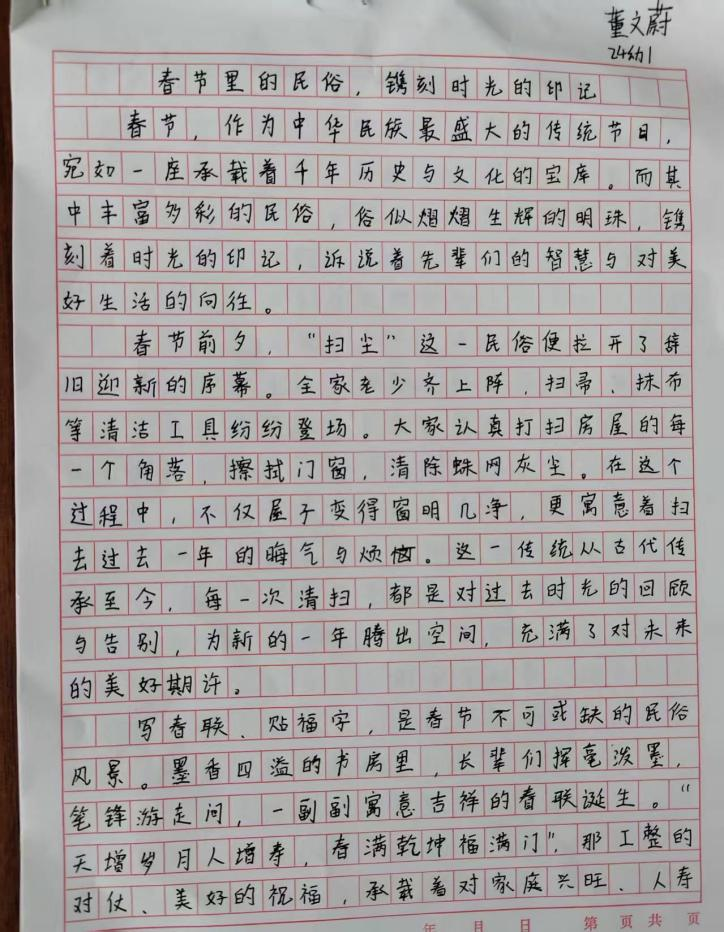 董文蔚
24幼1
春节里的民俗，镌刻时光的印记
春节，作为中华民族最盛大的传统节日，
宛如一座承载着千年历史与文化的宝库。而其
中丰富多彩的民俗，俗似熠熠生辉的明珠，镌
刻着时光的印记，诉说着先辈们的智慧与对美
好生活的向往。
春节前夕，“扫尘”这一民俗便拉开了辞
旧迎新的序幕。全家老少齐上阵，扫帚、抹布
等清洁工具纷纷登场。大家认真打扫房屋的每
一个角落，擦拭门窗，清除蛛网灰尘。在这个
过程中，不仅屋子变得窗明几净，更寓意着扫
去过去一年的晦气与烦恼。这一传统从古代传
承至今，每一次清扫，都是对过去时光的回顾
与告别，为新的一年腾出空间，充满了对未来
的美好期许。
写春联、贴福字，是春节不可或缺的民俗
风景。墨香四溢的书房里，长辈们挥毫泼墨，
笔锋游走间，一副副寓意吉祥的春联诞生。“
天增岁月人增寿，春满乾坤福满门”，那工整的
对仗、美好的祝福，承载着对家庭兴旺、人寿
年 月 日 第 页 共 页